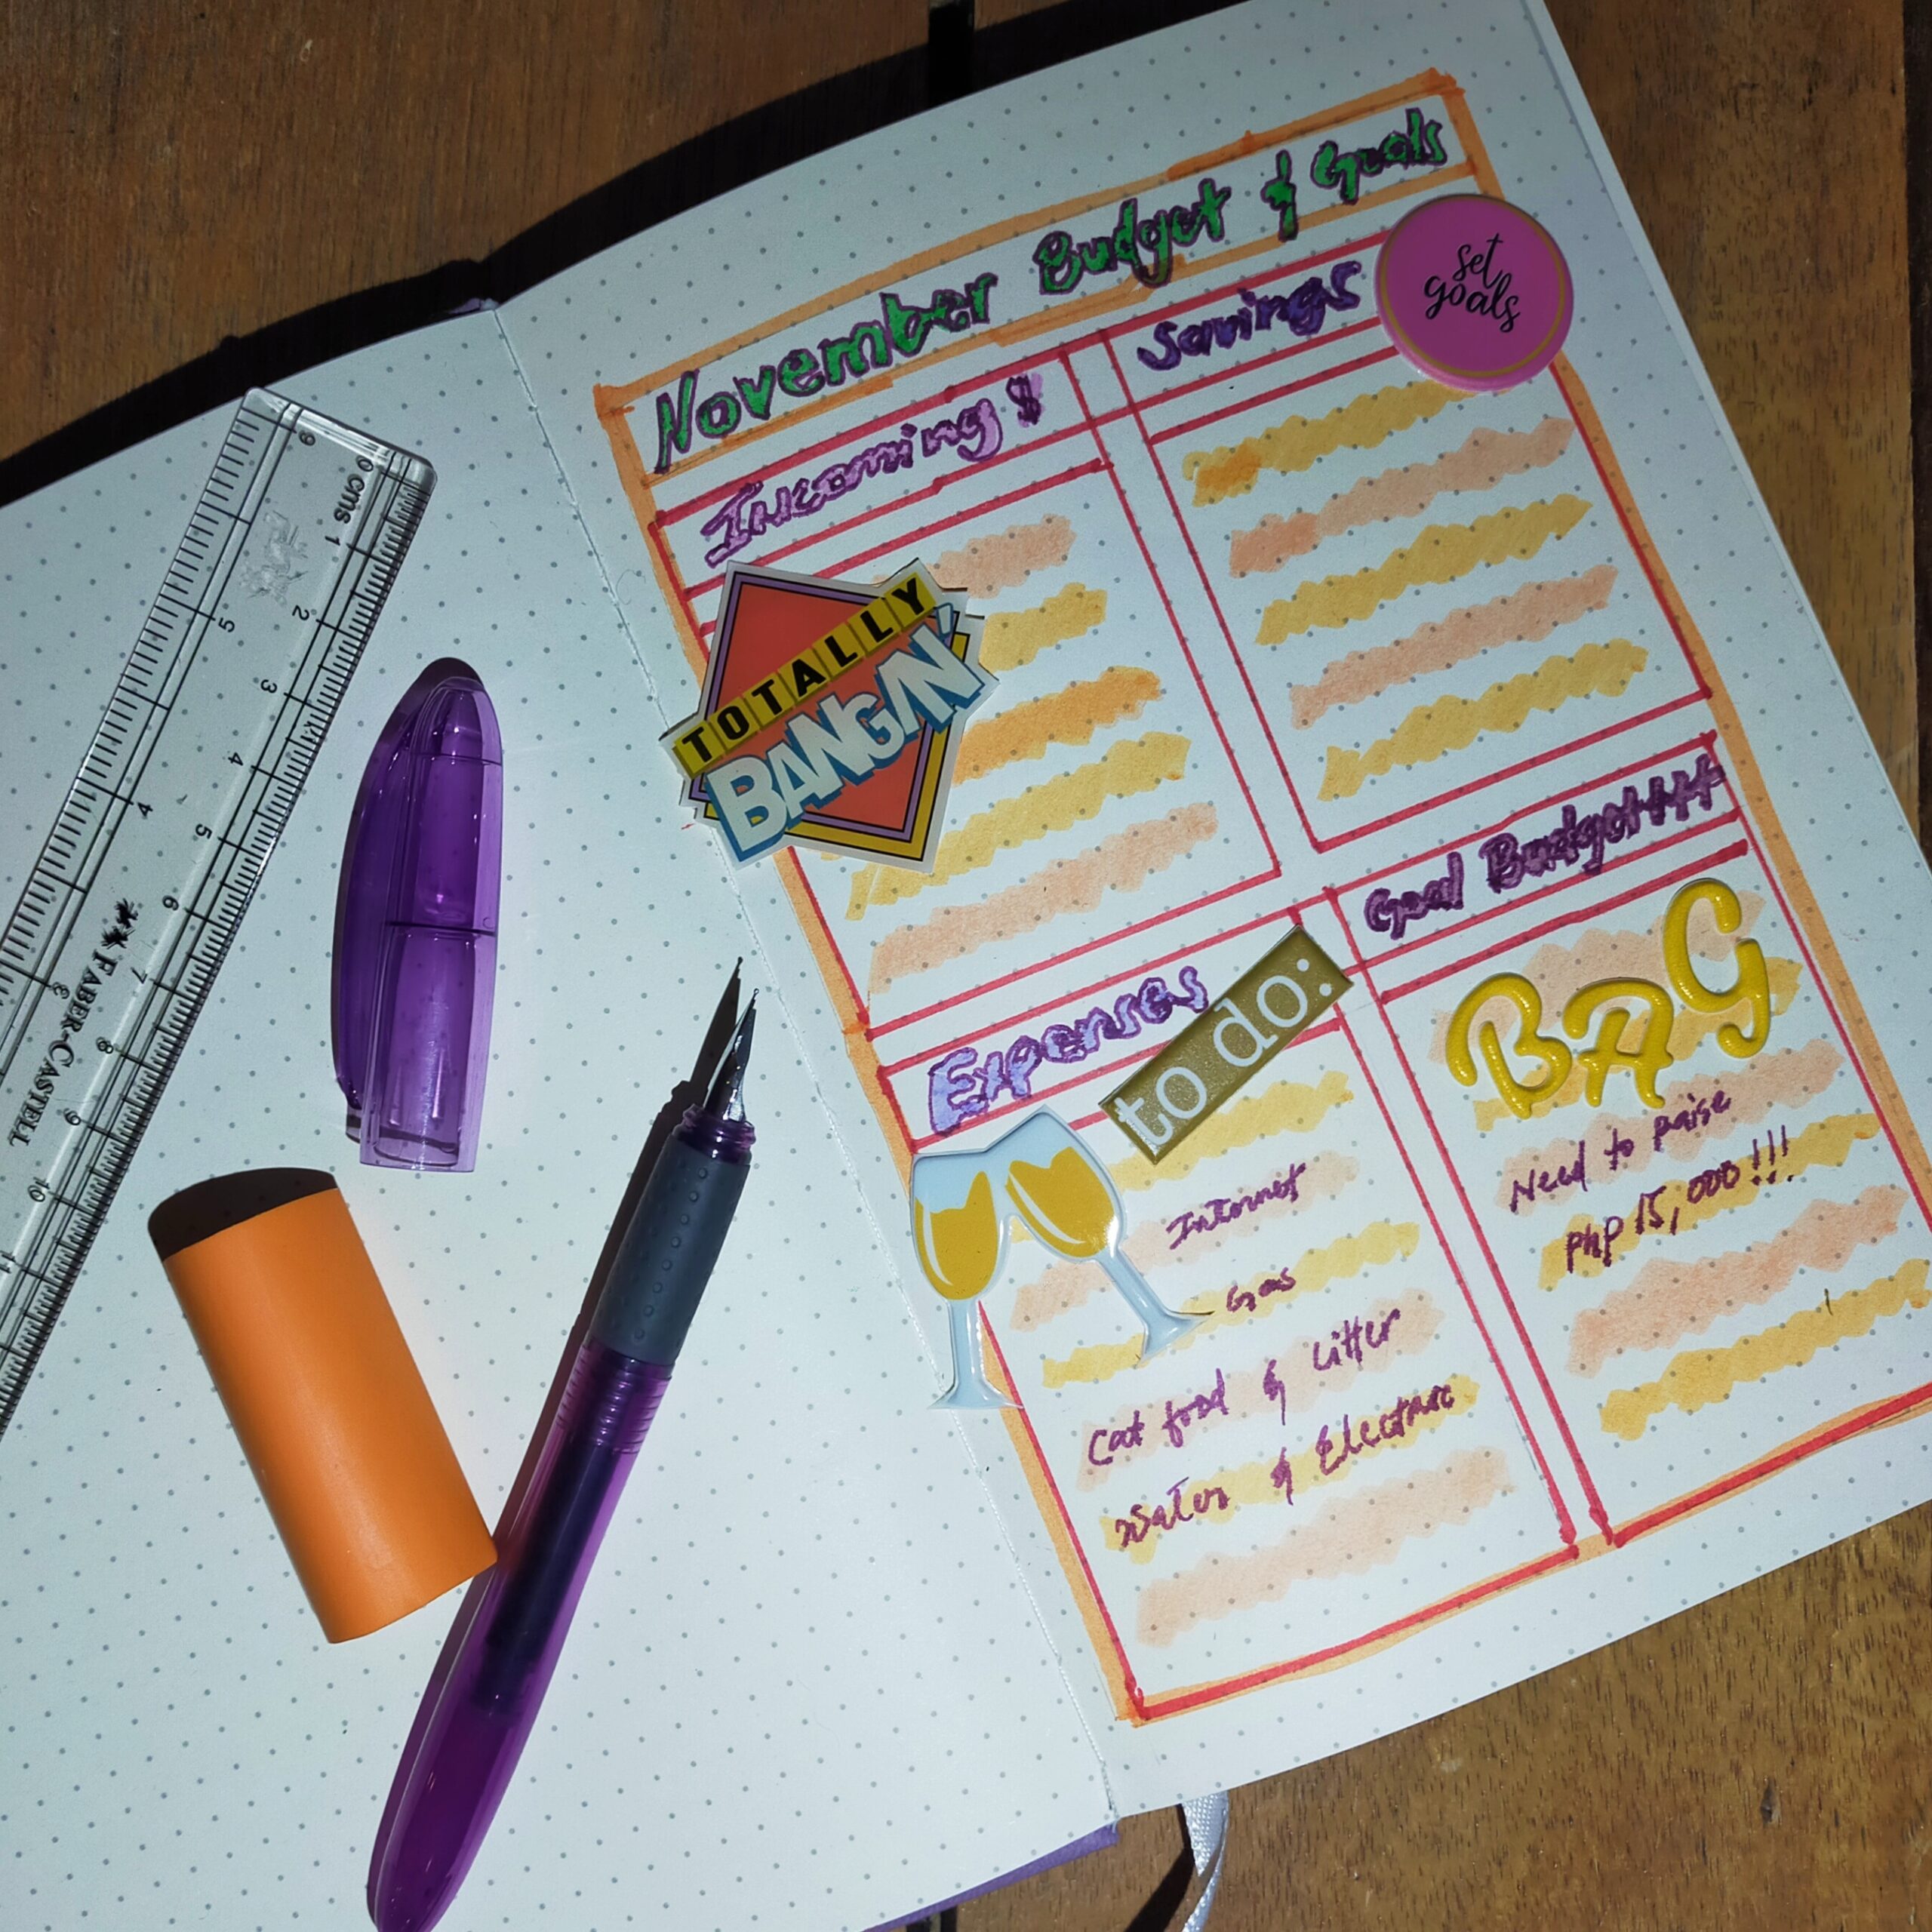 November Budget & Goals
Incoming $
Savings
set
goals
TOTALLY
BANGIN'
Expenses
to do:
Internet
Gas
Cat food & Litter
Water & Electric
Goal Budget
BAG
Need to raise
Php 15,000!!!
0 cms 1 2 3 4 5 6 7 8 9 10 11
6 5 4 3
FABER-CASTELL